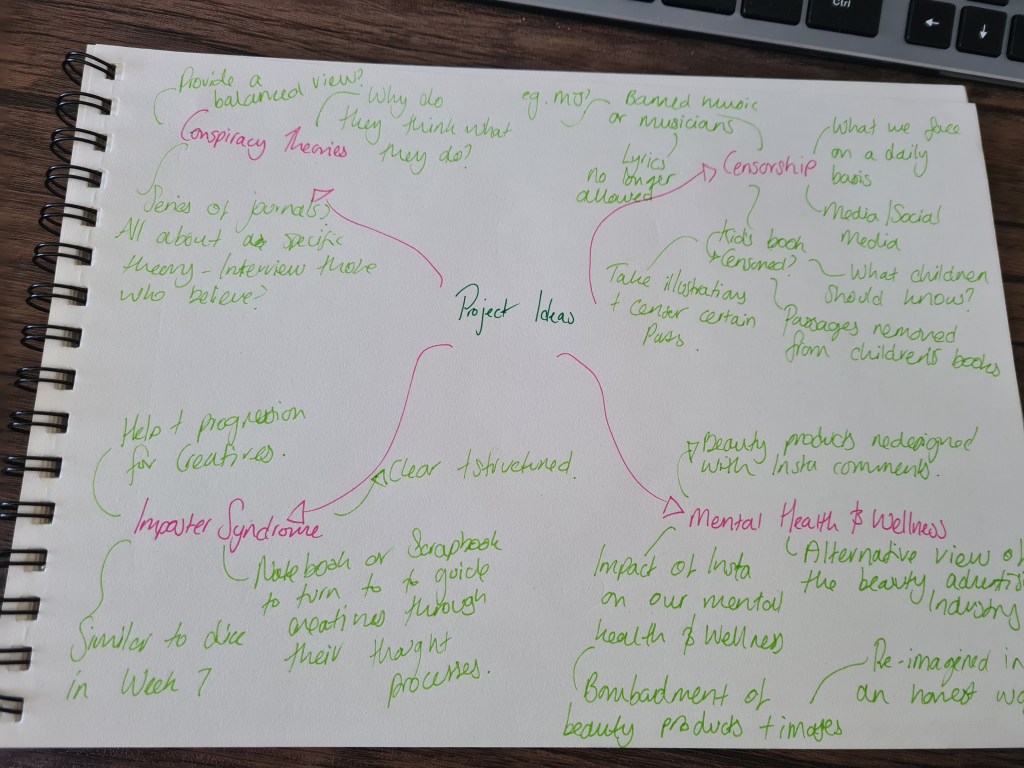 Ctrl
←
↓
Provide a
balanced view?
Why do
they think what
they do?
Conspiracy Theories
Series of journals?
All about a specific
theory - Interview those
who believe?
Project Ideas
eg. MJ?
Banned music
or musicians
Lyrics
no longer
allowed
Censorship
What we face
on a daily
basis
Media/Social
Media
Kids book
Censored?
What children
should know?
Take illustrations
+ censor certain
Pass.
Passages removed
from children's books
Help + progression
for Creatives.
Clear + structured.
Imposter Syndrome
Notebook or Scrapbook
to turn to to guide
creatives through
their thought
processes.
Similar to dice
in Week 7
Beauty products redesigned
with Insta comments.
Mental Health & Wellness
Impact of Insta
on our mental
health & Wellness
Alternative view of
the beauty advertis
Industry
Bombardment of
beauty products + images
Re-imagined in
an honest wa